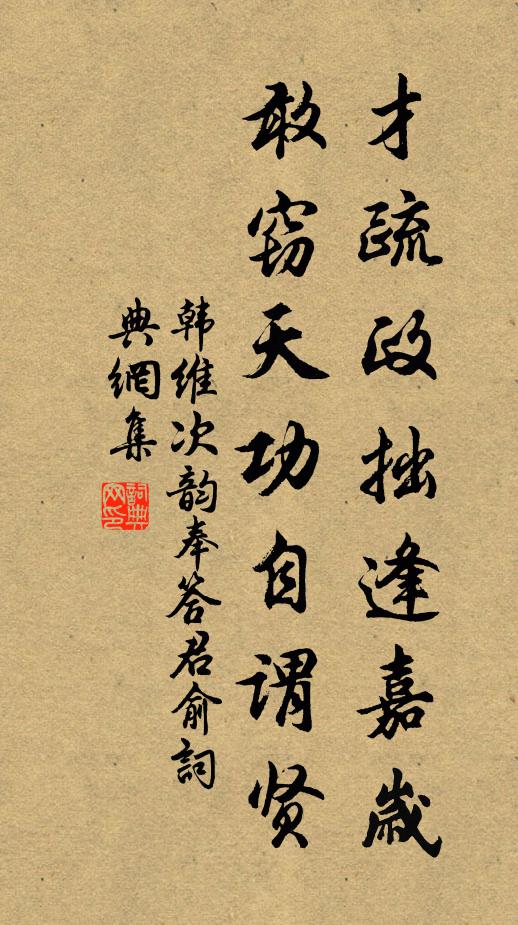 才疏政拙逢嘉歲
敢窃天功自谓贤
韩維次韵奉答君俞詞
典網集
詞典
网印